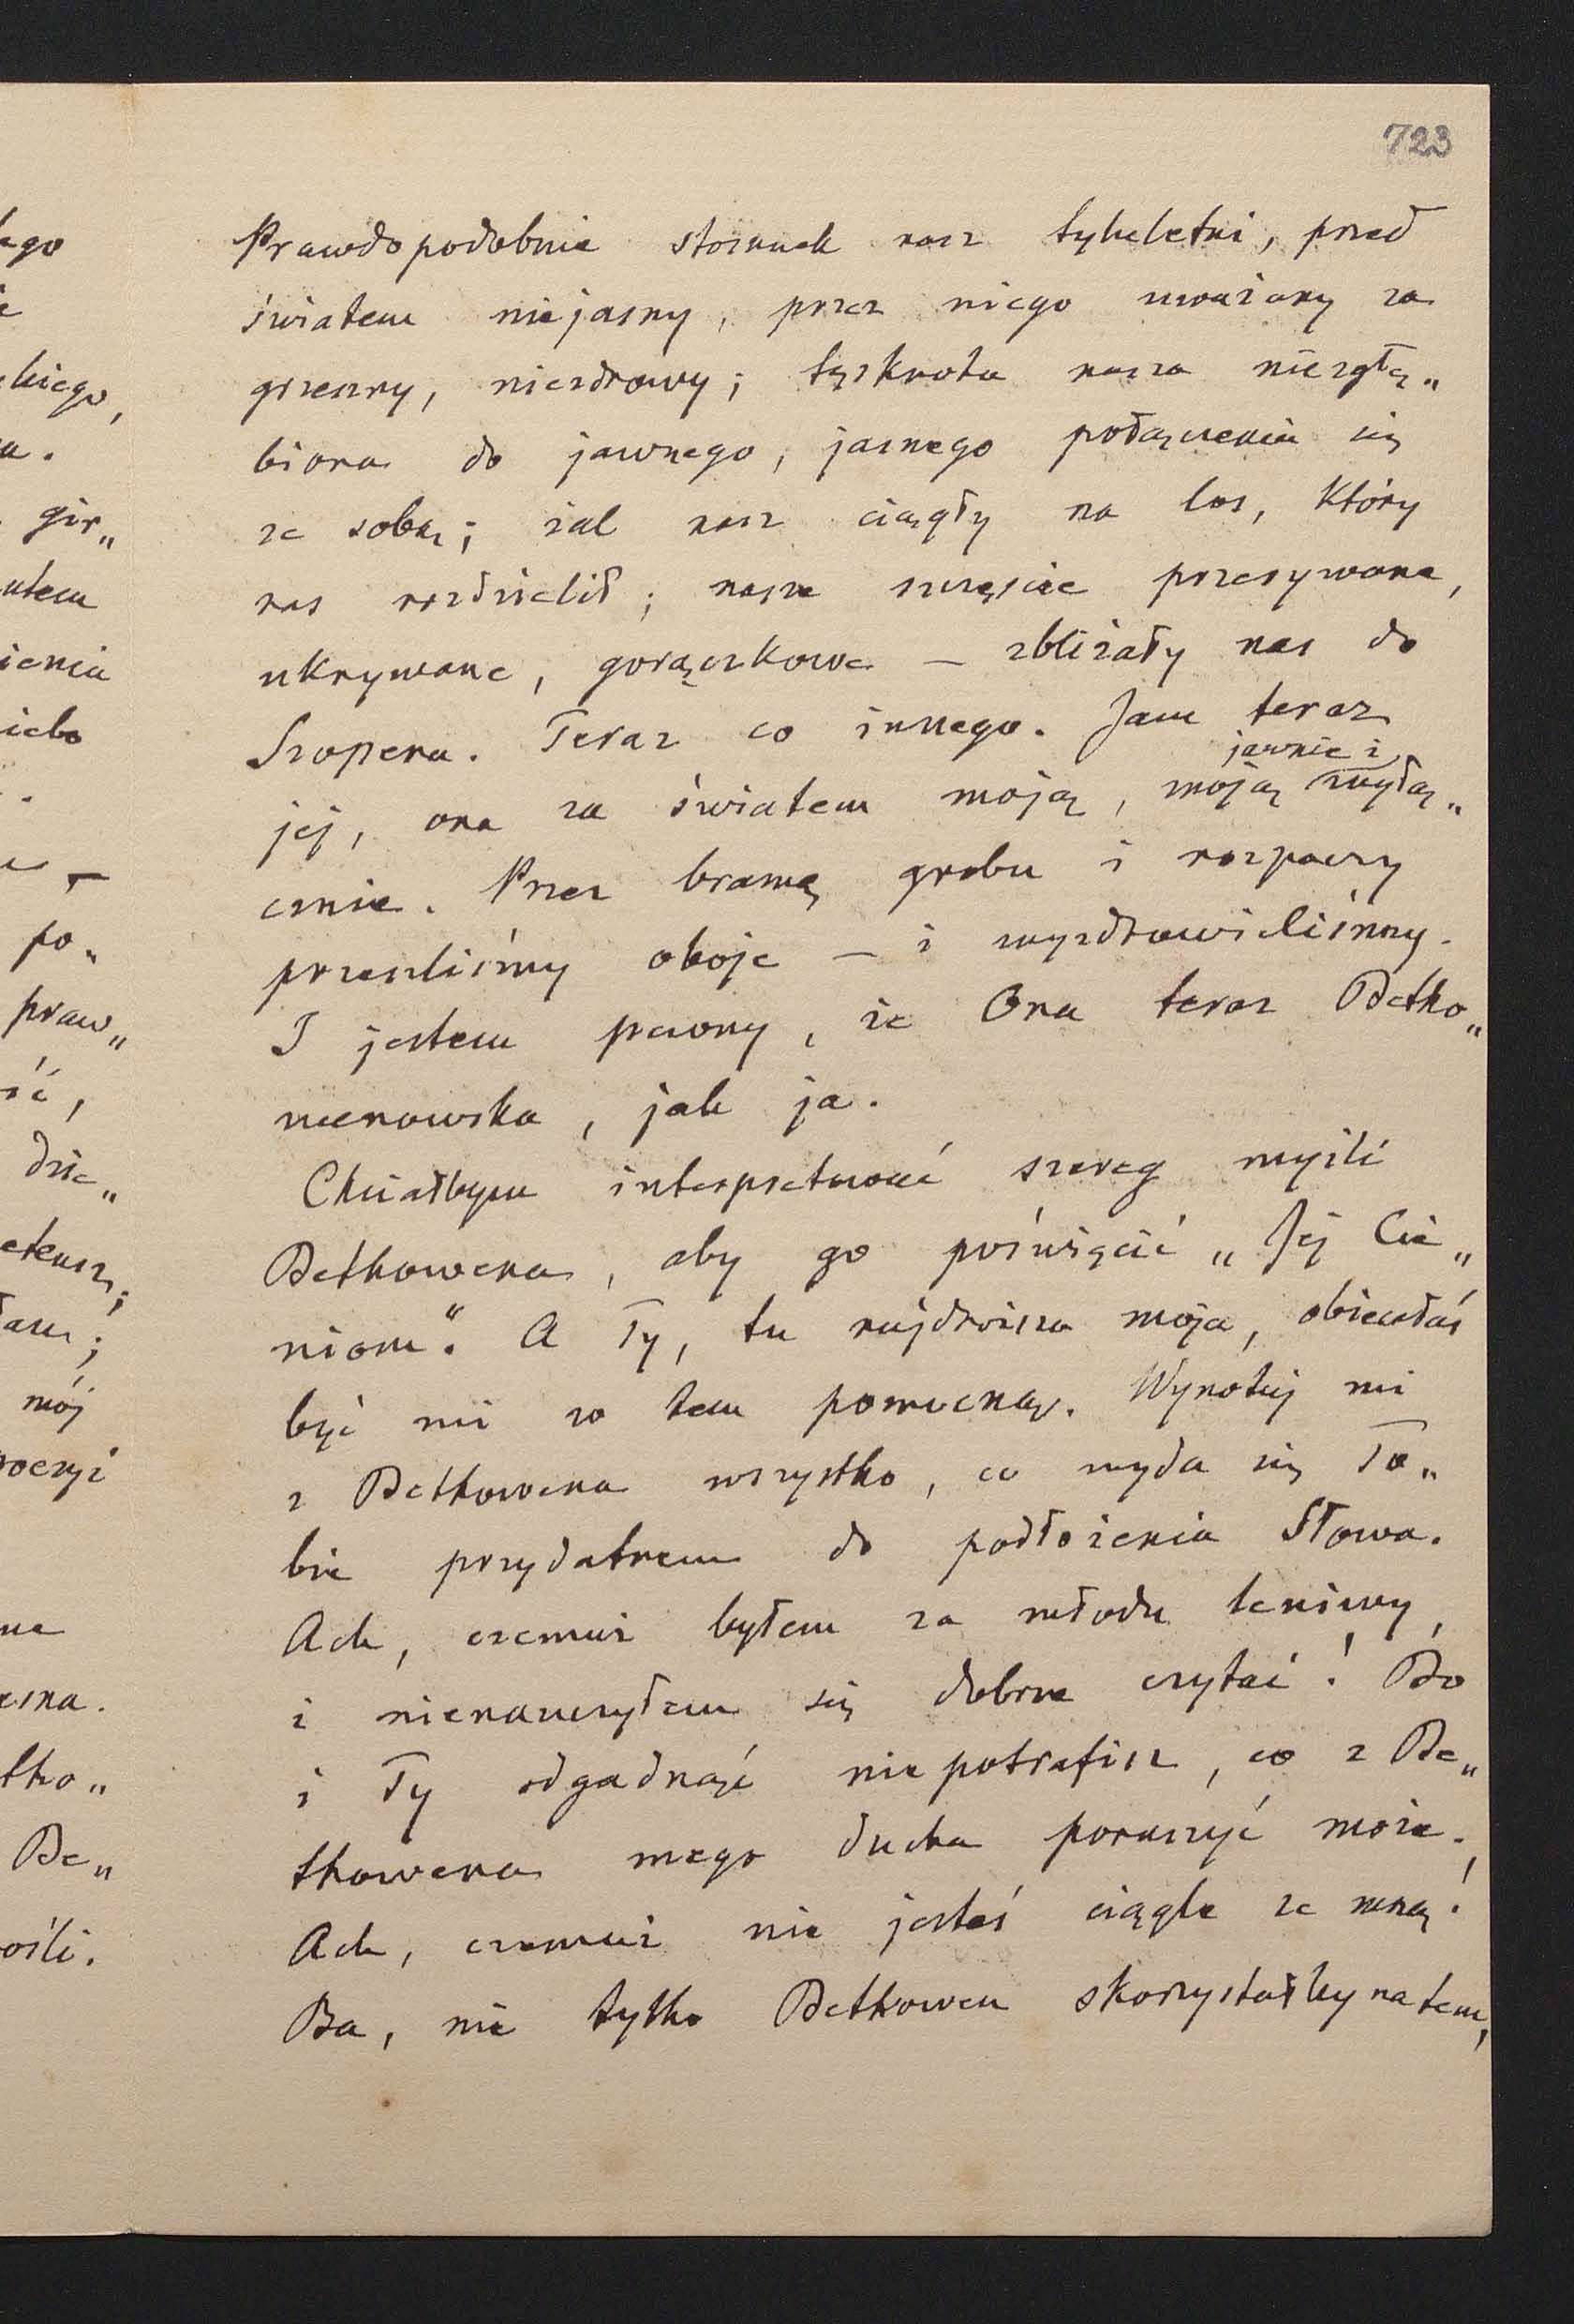 723
Prawdopodobnie stosunek nasz tyleletni, przed
światem niejasny, przez niego uważany za
grzeszny, niezdrowy; tęsknota nasza niezgłę„
biona do jawnego, jasnego połączenia się
ze sobą; żal nasz ciągły na los, który
nas rozdzielił; nasze szczęście przerywane,
ukrywane, gorączkowe — zbliżały nas do
Szopena. Teraz co innego. Jam teraz
jawnie i
jej, ona za światem moją, moją wyłą„
cznie. Przez bramę grobu i rozpaczy
przeszliśmy oboje — i wyzdrowieliśmy.
I jestem pewny, że Ona teraz Betho„
wenowska, jak ja.
Chciałbym interpretować szereg myśli
Bethowena, aby go poświęcić „Jej Cie„
niom“. A Ty, tu najdroższa moja, obiecałaś
być mi w tem pomocną. Wynotuj mi
z Bethowena wszystko, co wyda się To„
bie przydatnem do podłożenia Słowa.
Ach, czemuż byłem za młodu leniwy,
i nienauczyłem się dobrze czytać! Bo
i Ty odgadnąć nie potrafisz, co z Be„
thowena mego ducha poruszyć może.
Ach, czemuż nie jesteś ciągle ze mną!
Ba, nie tylko Bethowen skorzystałby na tem,
ego
kiego,
gir„
utem
ienia
iebo
po„
praw„
ść,
dzie„
mój
oezyi
tho„
Be„
ośli.